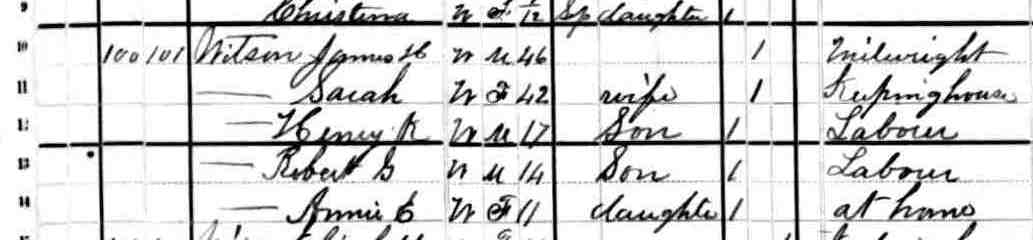 9 Christina W F /12 Sp daughter 1
10 100 101 Wilson James H W M 46 1 Milwright
11 — Sarah W F 42 wife 1 Keepinghouse
12 — Henry K W M 17 Son 1 Labour
13 — Robert G W M 14 Son 1 Labour
14 — Annie E W F 11 daughter 1 at home